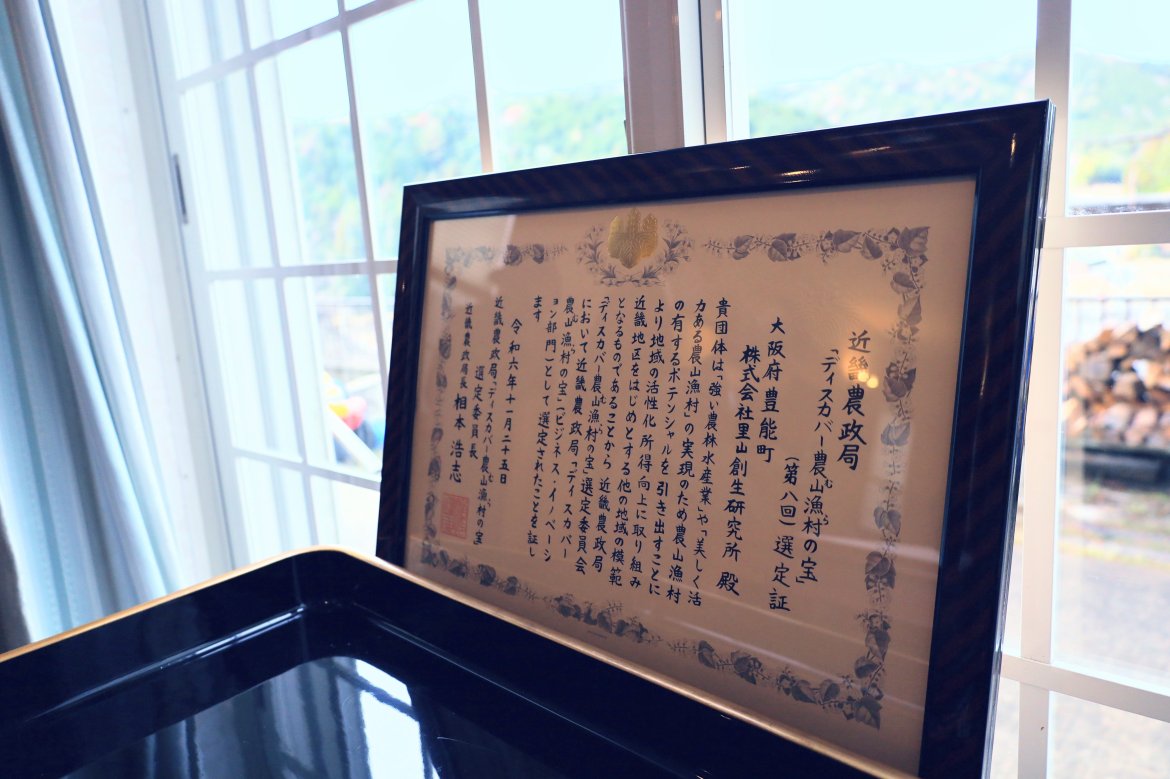 近畿農政局
「ディスカバー農山漁村の宝」
むら
（第八回）選定証
大阪府豊能町
株式会社里山創生研究所 殿
貴団体は「強い農林水産業」や「美しく活
力ある農山漁村」の実現のため農山漁村
の有するポテンシャルを引き出すことに
より地域の活性化 所得向上に取り組み
近畿地区をはじめとする他の地域の模範
となるものであることから 近畿農政局
「ディスカバー農山漁村の宝」選定委員会
むら
において近畿農政局「ディスカバー
農山漁村の宝」（ビジネス・イノベーシ
むら
ョン部門）として選定されたことを証し
ます
令和六年十一月二十五日
近畿農政局「ディスカバー農山漁村の宝」
むら
選定委員長
近畿農政局長 相本 浩志